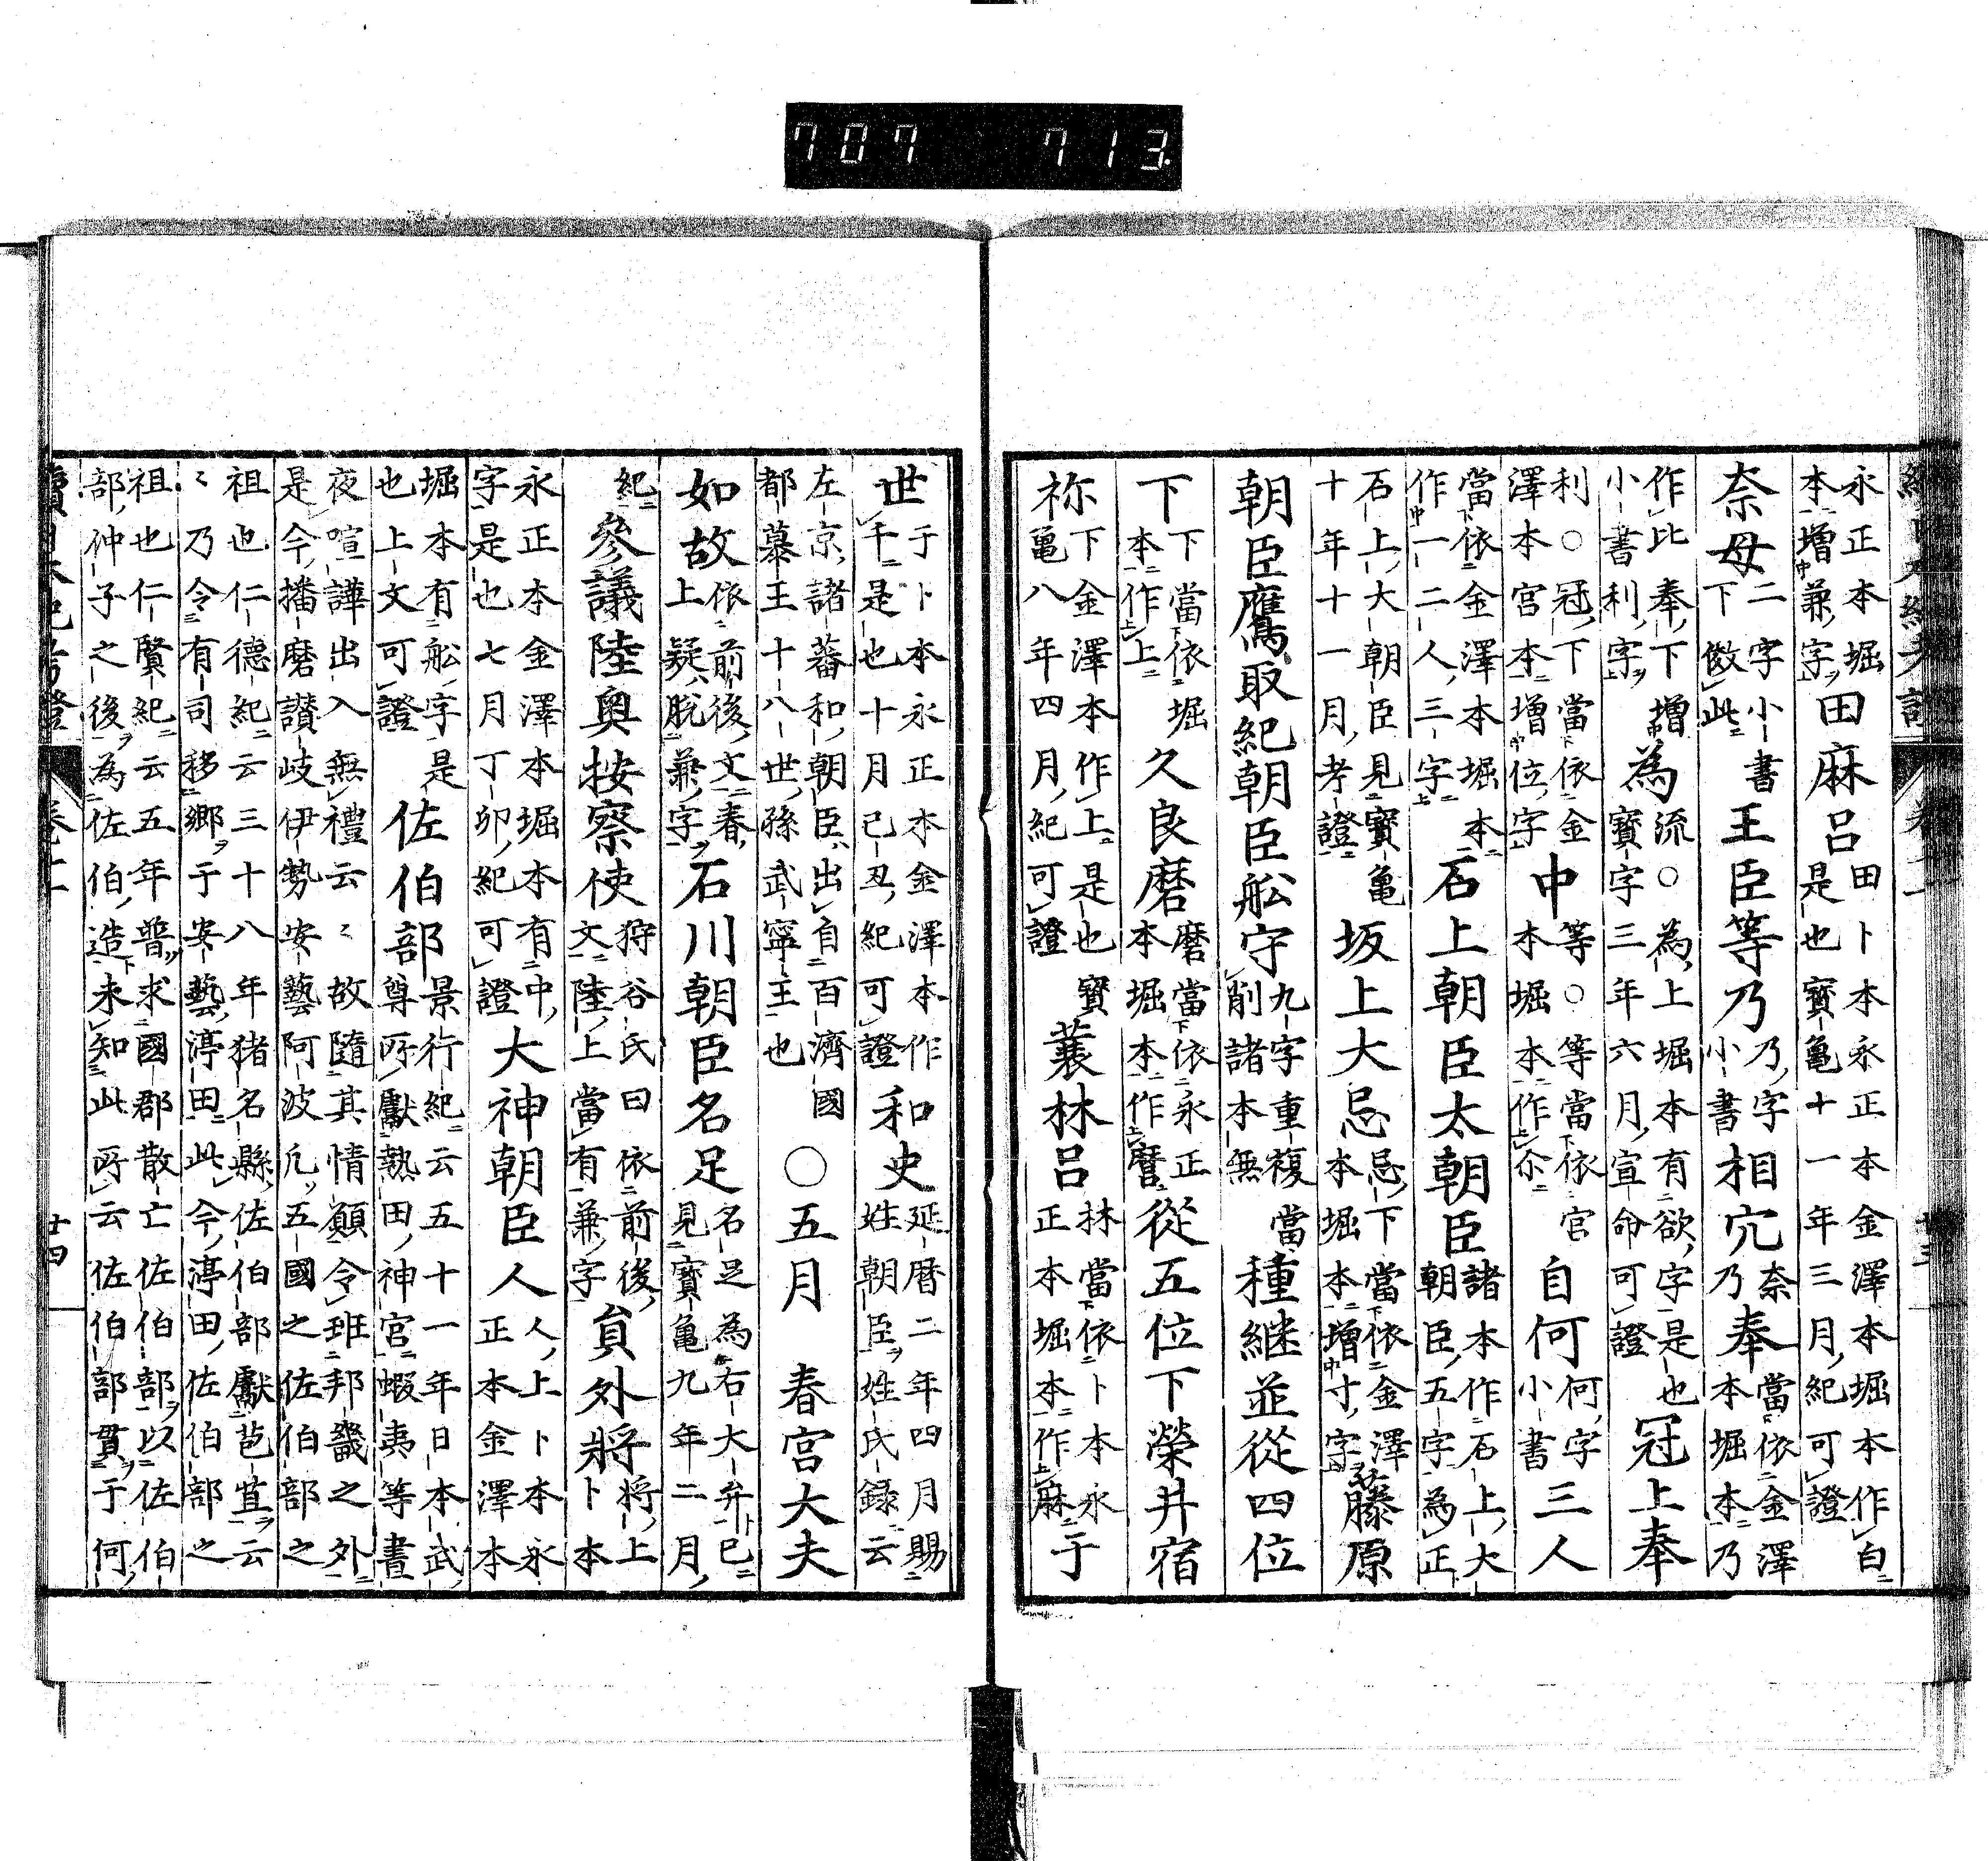 707 713
永正本堀本增兼字田麻呂田卜本永正本金澤本堀本作白是也寶龜十一年三月紀可證
奈母二字小書下倣此王臣等乃乃字小書相宂奈乃奉當依金澤本堀本乃
作比奉下增小書利字為流○為上堀本有欲字是也寶字三年六月宣命可證冠上奉
利○冠下當依金澤本宮本增位字中等○等當依官本堀本作尒自何何字小書三人
當依金澤本堀本作一二人三字石上朝臣太朝臣諸本作石上大朝臣五字為正
石上大朝臣見寶龜十年十一月考證坂上大忌忌下當依金澤本堀本增寸字藤原
朝臣鷹取紀朝臣舩守九字重複當削諸本無種継並從四位
下下當依堀本作上久良磨磨當依永正本堀本作麿從五位下榮井宿
祢下金澤本作上是也寶龜八年四月紀可證蓑林呂林當依卜本永正本堀本作麻于
世于卜本永正本金澤本作千是也十月己丑紀可證和史延曆二年四月賜姓朝臣姓氏録云
左京諸蕃和朝臣出自百濟國都慕王十八世孫武寧王也○五月春宮大夫
如故依前後文春上疑脫兼字石川朝臣名足名足為右大弁已見寶龜九年二月
紀參議陸奥按察使狩谷氏曰依前後文陸上當有兼字貟外将将上卜本
永正本金澤本堀本有中字是也七月丁卯紀可證大神朝臣人人上卜本永正本金澤本
堀本有舩字是也上文可證佐伯部景行紀云五十一年日本武尊所獻熱田神宮蝦夷等晝
夜喧譁出入無禮云〻故隨其情願令班邦畿之外是今播磨讃岐伊勢安藝阿波凢五國之佐伯部之
祖也仁德紀云三十八年猪名縣佐伯部獻苞苴云〻乃令有司移鄉于安藝渟田此今渟田佐伯部之
祖也仁賢紀云五年普求國郡散亡佐伯部以佐伯部仲子之後為佐伯造未知此所云佐伯部貫于何
卷十一
廿四